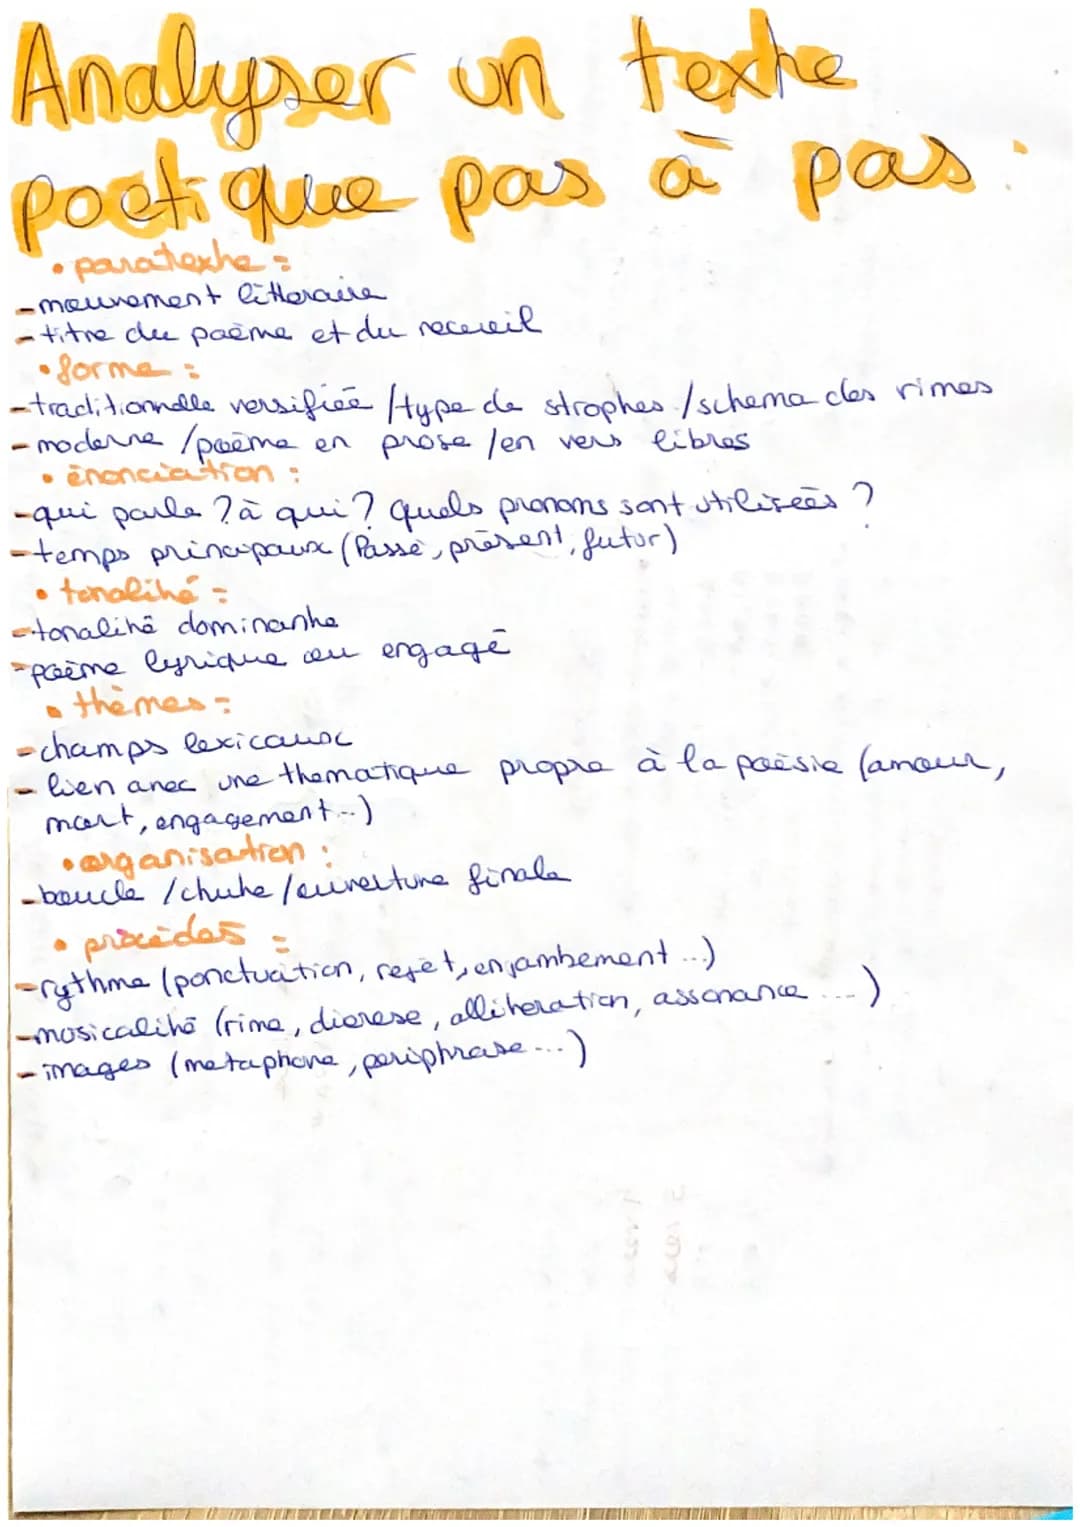 Analyser un texte
poetique pas à pas :
• paratexte :
- mouvement littéraire
- titre du poème et du recueil
• forme :
- traditionnelle versifiée / type de strophes / schema des rimes
- moderne / poème en prose / en vers libres
• énonciation :
- qui parle ? à qui ? quels pronoms sont utilisées ?
- temps principaux (Passé, présent, futur)
• tonalité :
- tonalité dominante
- poème lyrique ou engagé
• thèmes :
- champs lexicaux
- lien avec une thematique propre à la poésie (amour,
mort, engagement...)
• organisation :
- boucle / chute / ouverture finale
• procédés :
- rythme (ponctuation, rejet, enjambement ...)
- musicalité (rime, dierese, alliteration, assonance ....)
- images (metaphore, periphrase....)